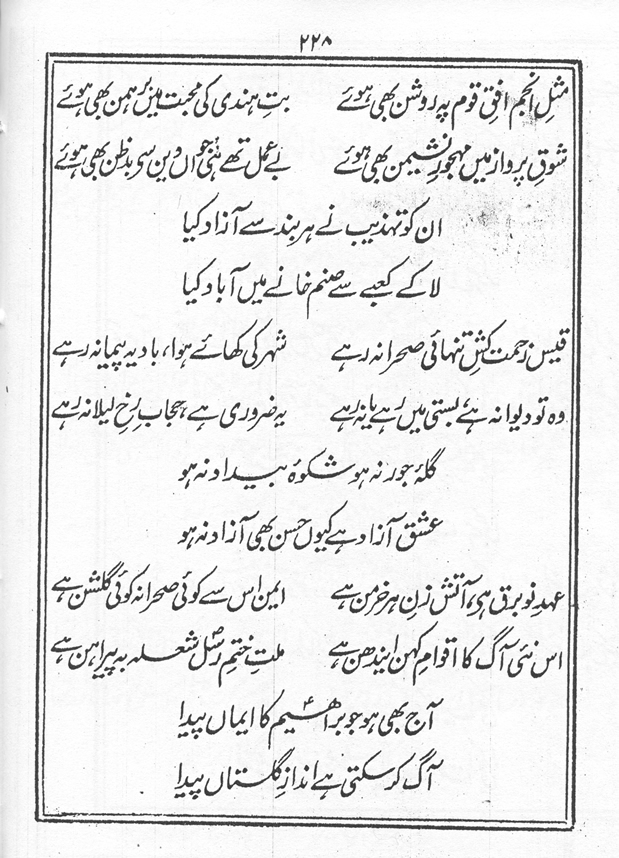 ۲۲۸
مثلِ انجم افقِ قوم پہ روشن بھی ہوئے بتِ ہندی کی محبت میں برہمن بھی ہوئے
شوقِ پرواز میں مہجورِ نشیمن بھی ہوئے بے عمل تھے ہی جواں دین سی بدظن بھی ہوئے
ان کو تہذیب نے ہر بند سے آزاد کیا
لا کے کعبے سے صنم خانے میں آباد کیا
قیس زحمت کشِ تنہائیِ صحرا نہ رہے شہر کی کھائے ہوا، بادیہ پیما نہ رہے
وہ تو دیوانہ ہے، بستی میں رہے یا نہ رہے یہ ضروری ہے، حجابِ رخِ لیلا نہ رہے
گلۂ جور نہ ہو شکوۂ بیداد نہ ہو
عشق آزاد ہے کیوں حسن بھی آزاد نہ ہو
عہدِ نو برق ہی، آتش زنِ ہر خرمن ہے ایمن اس سے کوئی صحرا نہ کوئی گلشن ہے
اس نئی آگ کا اقوامِ کہن ایندھن ہے ملتِ ختمِ رسلؐ شعلہ بہ پیراہن ہے
آج بھی ہو جو براھیمؑ کا ایماں پیدا
آگ کر سکتی ہے اندازِ گلستاں پیدا